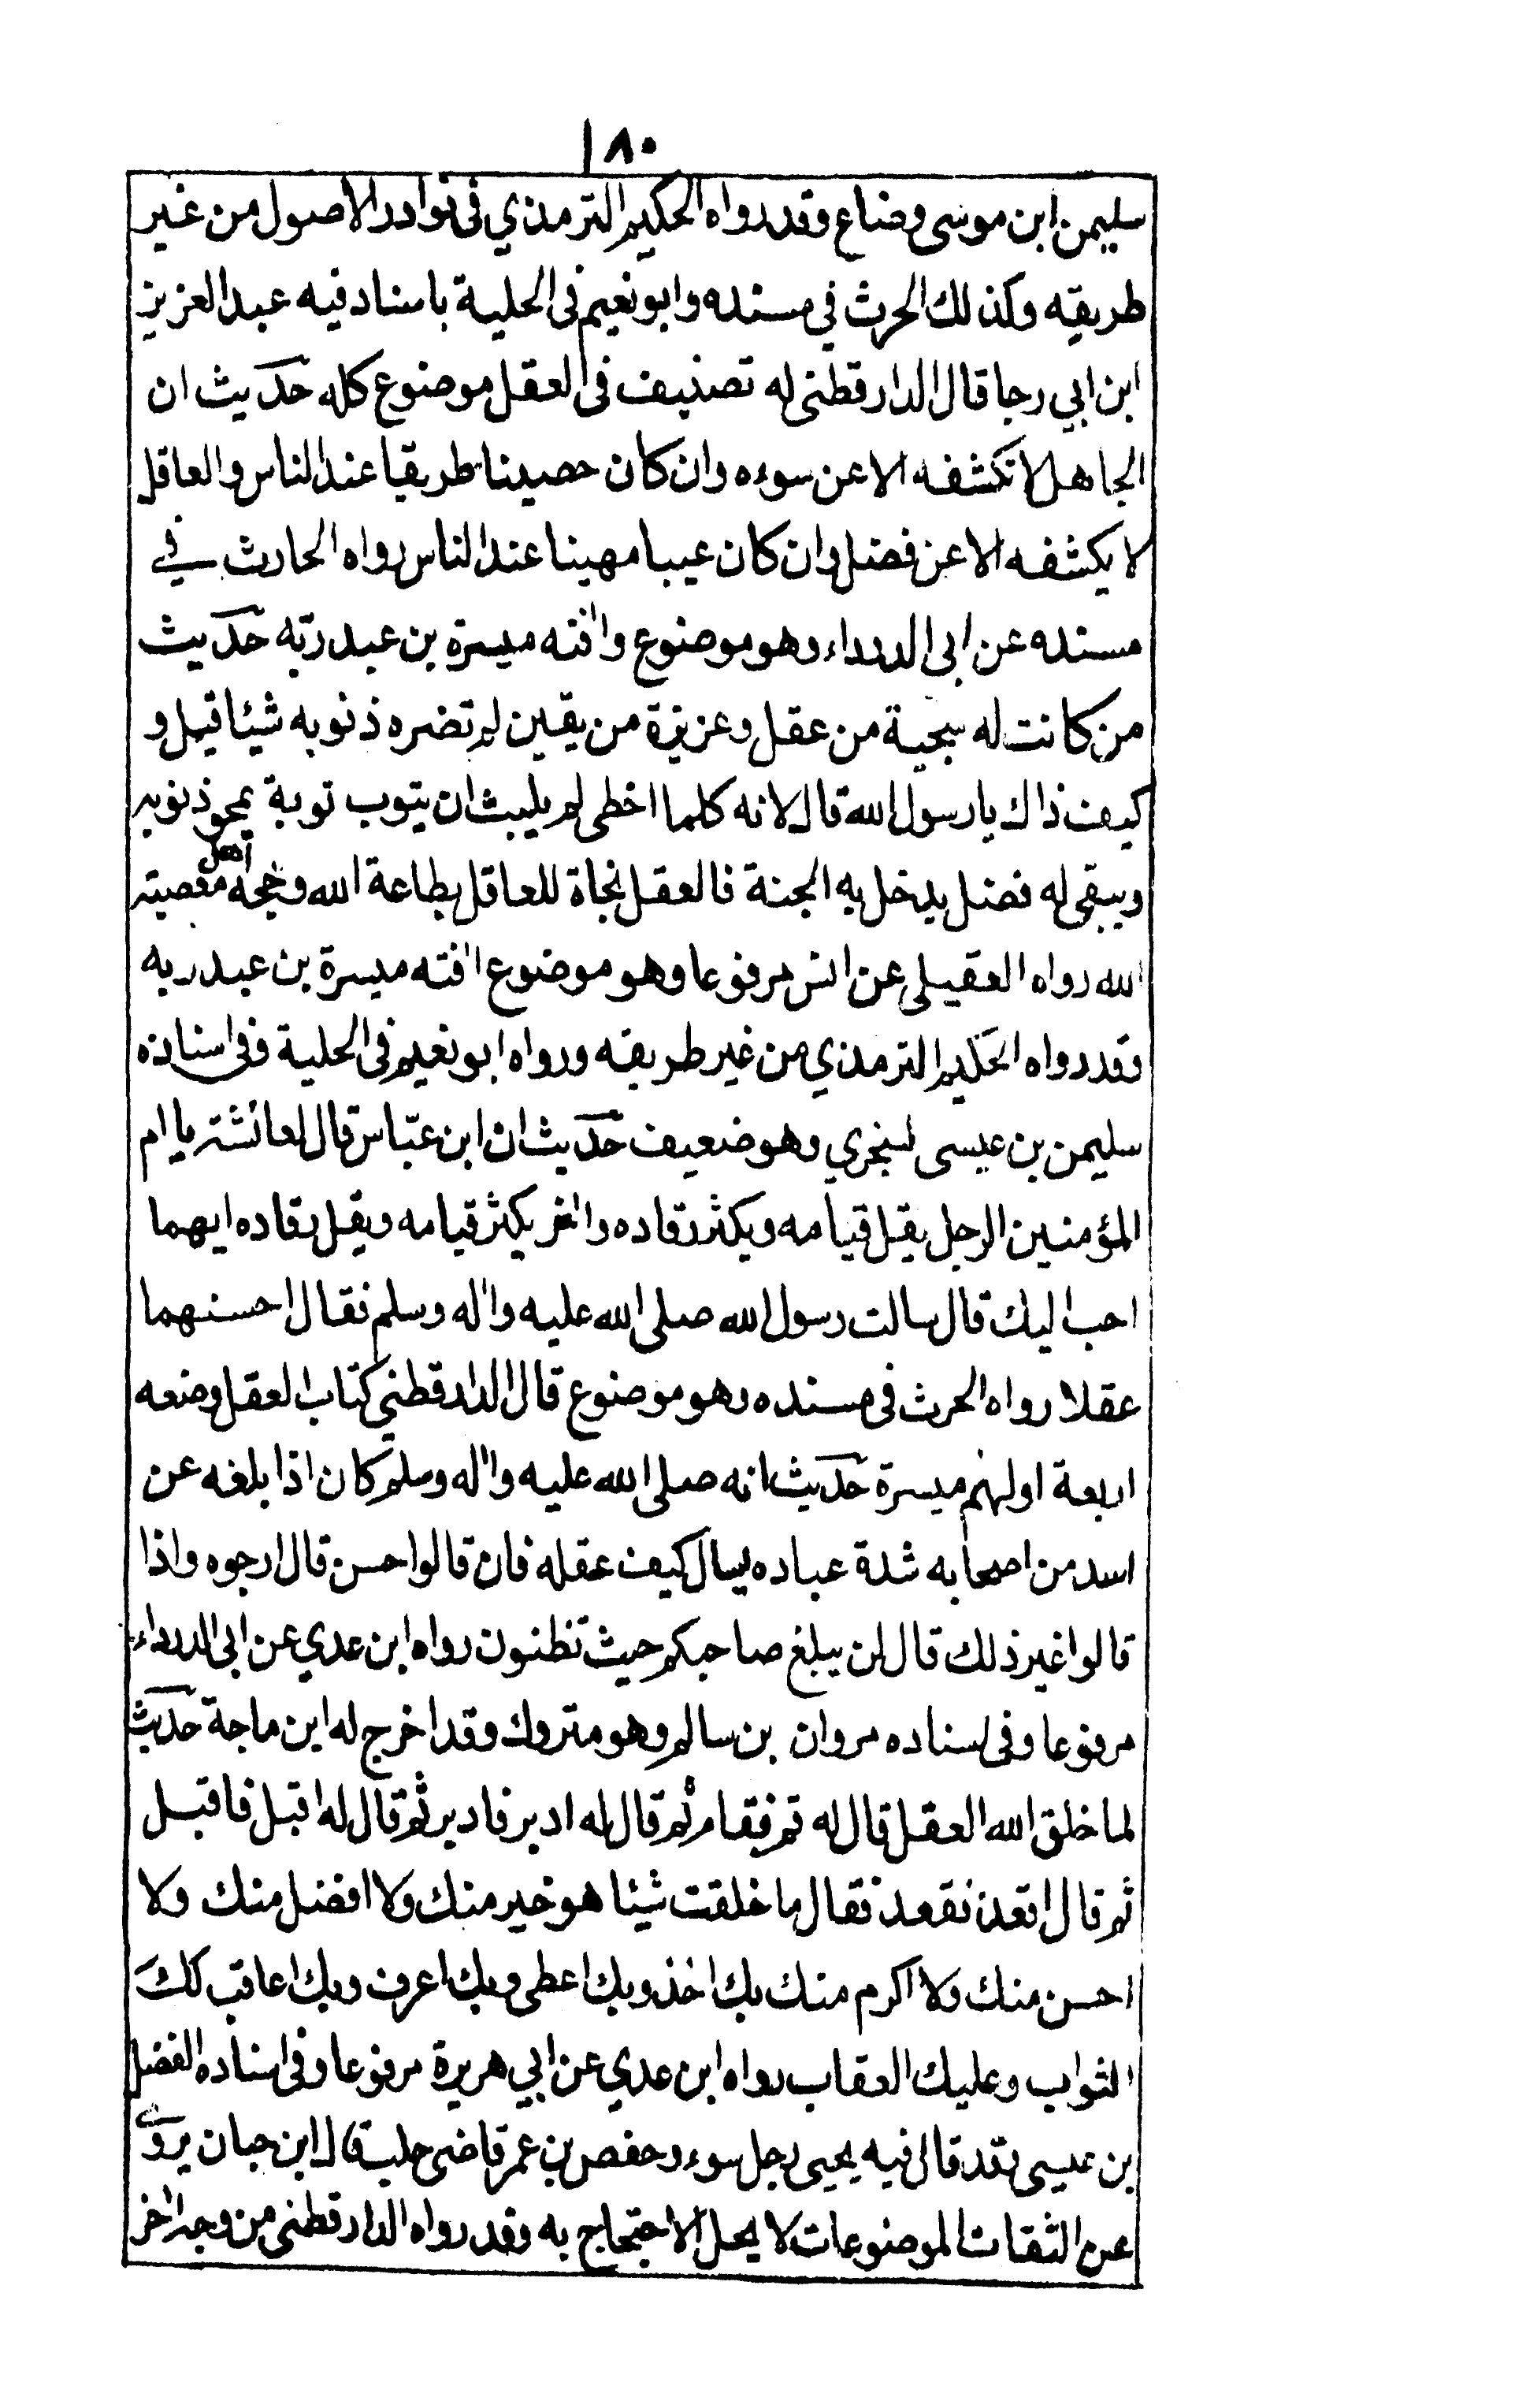 ١٨٠
سليمن ابن موسى وضاع وقد رواه الحكيم الترمذي فى نوادر الأصول من غير
طريقه وكذلك الحرث في مسنده وابو نعيم فى الحلية باسناد فيه عبد العزيز
ابن ابي رجا قال الدارقطنى له تصنيف فى العقل موضوع كله حديث ان
الجاهل لا تكشفه الا عن سوءه وان كان حصينا طريقا عند الناس والعاقل
لا يكشفه الا عن فضل وان كان عيبا مهينا عند الناس رواه الحارث في
مسنده عن ابى الدرداء وهو موضوع وافته ميسرة بن عبد ربّه حديث
من كانت له سجية من عقل وعزيزة من يقين لم تضره ذنوبه شيئا قيل و
كيف ذاك يا رسول الله قال لانه كلما اخطى لم يلبث ان يتوب توبة يمحو ذنوبه
ويبقى له فضل يدخل به الجنة فالعقل نجاة للعاقل بطاعة الله وحجة اهل معصية
الله رواه العقيلى عن انس مرفوعا وهو موضوع افته ميسرة بن عبد ربه
وقد رواه الحكيم الترمذي من غير طريقه ورواه ابو نعيم فى الحلية وفى اسناده
سليمن بن عيسى لسنجري وهو ضعيف حديث ان ابن عبّاس قال لعائشة يا ام
المؤمنين الرجل يقل قيامه ويكثر رقاده واخر يكثر قيامه ويقل رقاده ايهما
احب اليك قال سالت رسول الله صلى الله عليه واله وسلم فقال احسنهما
عقلا رواه الحرث فى مسنده وهو موضوع قال الدارقطني كتاب العقل وضعه
اربعة اولهم ميسرة حديث انه صلى الله عليه واله وسلم كان اذا بلغه عن
اسد من اصحابه شدة عباده يسال كيف عقله فان قالوا حسن قال ارجوه واذا
قالوا غير ذلك قال لن يبلغ صاحبكم حيث تظنون رواه ابن عدي عن ابى الدرداء
مرفوعا وفى اسناده مروان بن سالم وهو متروك وقد اخرج له ابن ماجة حديث
لما خلق الله العقل قال له قم فقام ثم قال له ادبر فادبر ثم قال له اقبل فاقبل
ثم قال اقعد فقعد فقال ما خلقت شيئا هو خير منك ولا افضل منك ولا
احسن منك ولا اكرم منك بك اخذ وبك اعطى وبك اعرف وبك اعاقب لك
الثواب وعليك العقاب رواه ابن عدي عن ابي هريرة مرفوعا وفى اسناده الفضل
بن عيسى فقد قال فيه يحيى رجل سوء وحفص بن عمر قاضى حلب قال ابن حبان يروى
عن الثقات الموضوعات لا يحل الاحتجاج به وقد رواه الدارقطنى من وجه اخر